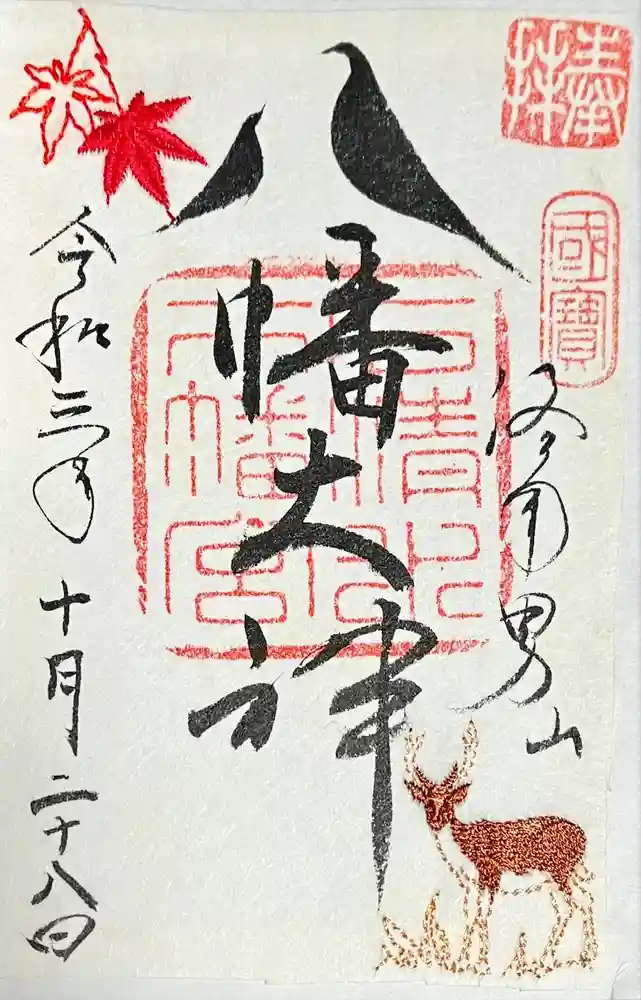 奉拝
國寶
洛南男山
八幡大神
石清水
八幡宮
令和三年十月二十八日